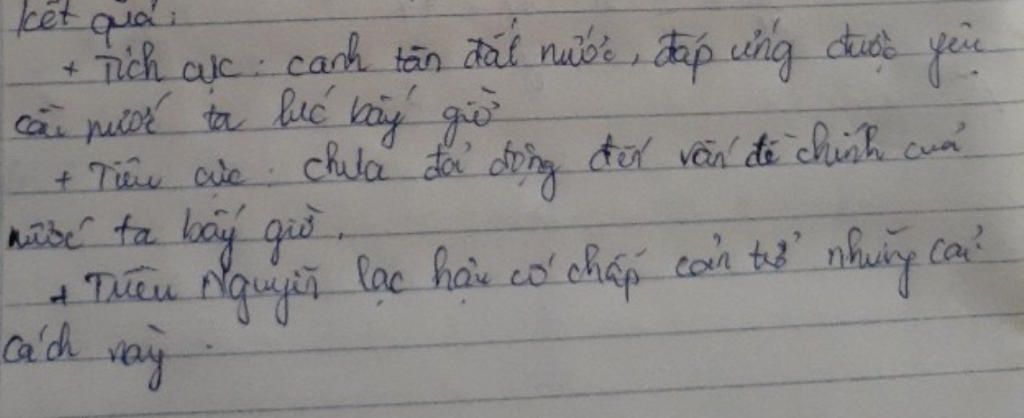 kết quả:
+ Tích cực: canh tân đất nước, đáp ứng được yêu
cầu nước ta lúc bấy giờ
+ Tiêu cực: chưa đả động đến vấn đề chính của
nước ta bấy giờ.
+ Triều Nguyễn lạc hậu cố chấp cản trở những cải
cách này.